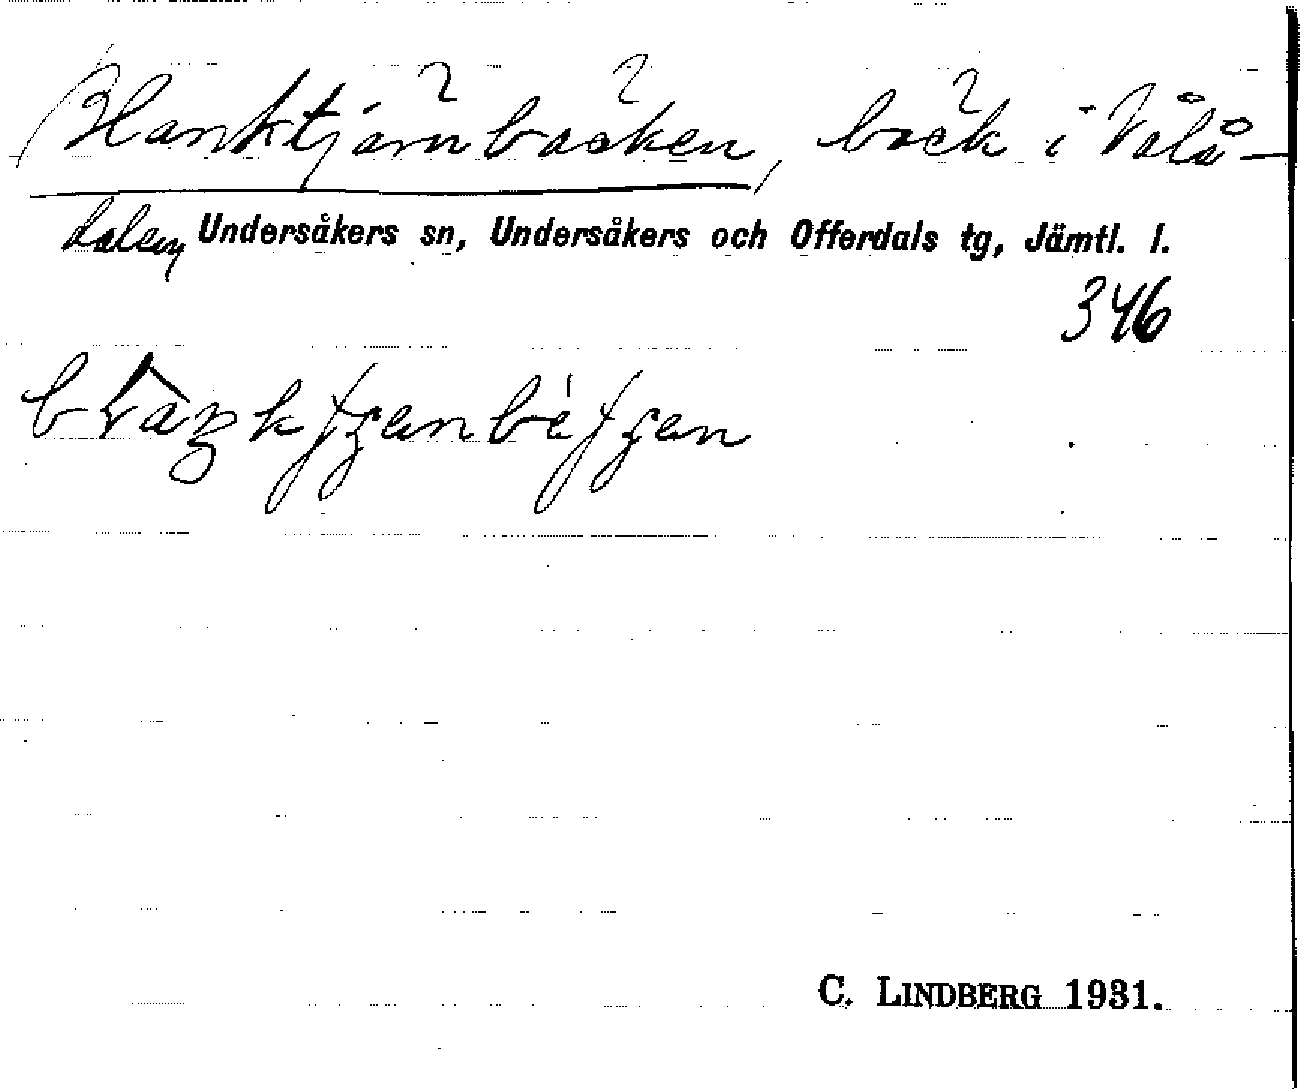 Blanktjärnbäcken, bäck i Vålå-
dalen, Undersåkers sn, Undersåkers och Offerdals tg, Jämtl. l.
346
C. LINDBERG 1931.